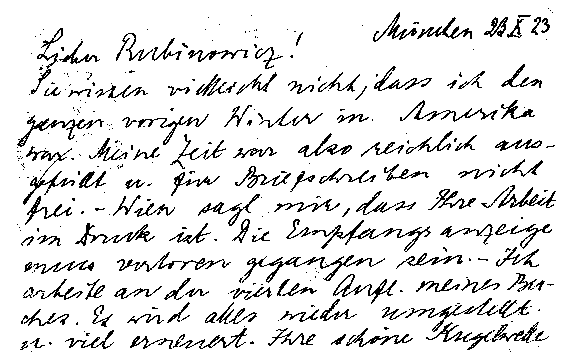 München 23 X 23
Lieber Rubinowicz!
Sie wissen vielleicht nicht, dass ich den
ganzen vorigen Winter in Amerika
war. Meine Zeit war also reichlich aus-
gefüllt u. für Briefschreiben nicht
frei. - Wien sagt mir, dass Ihre Arbeit
im Druck ist. Die Empfangsanzeige
muss verloren gegangen sein. - Ich
arbeite an der vierten Aufl. meines Bu-
ches. Es wird alles wieder umgestellt
u. viel erneuert. Ihre schöne Kugelwelle